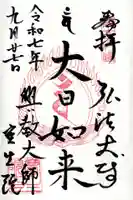 奉拝
弘法大師
大日如来
興教大師
室生院
令和七年
九月廿七日